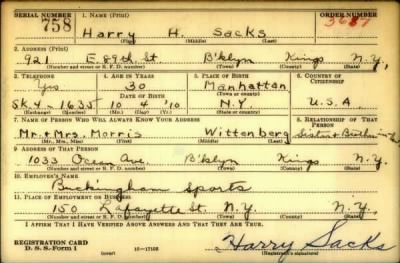 SERIAL NUMBER 1. NAME (Print) ORDER NUMBER
758 Harry H. Sacks
(First) (Middle) (Last)
2. ADDRESS (Print)
921 E. 89th St B'klyn Kings N.Y.
(Number and street or R. F. D. number) (Town) (County) (State)
3. TELEPHONE 4. AGE IN YEARS 5. PLACE OF BIRTH 6. COUNTRY OF CITIZENSHIP
Yes 30 Manhattan
DATE OF BIRTH (Town or county)
SK.4-1635 10 4 '10 N.Y U.S.A.
(Mo.) (Day) (Yr.) (State or country)
7. NAME OF PERSON WHO WILL ALWAYS KNOW YOUR ADDRESS 8. RELATIONSHIP OF THAT PERSON
Mr. & Mrs. Morris Wittenberg Sister & Brother in
(Mr., Mrs., Miss) (First) (Middle) (Last)
9. ADDRESS OF THAT PERSON
1033 Ocean Ave. B'klyn Kings N.Y.
(Number and street or R. F. D. number) (Town) (County) (State)
10. EMPLOYER'S NAME
Buckingham Sports
11. PLACE OF EMPLOYMENT OR BUSINESS
150 Lafayette St. N.Y. N.Y.
(Number and street or R. F. D. number) (Town) (County) (State)
I AFFIRM THAT I HAVE VERIFIED ABOVE ANSWERS AND THAT THEY ARE TRUE.
REGISTRATION CARD
D. S. S. Form 1 (over) 16-17105 Harry Sacks
(Registrant's signature)